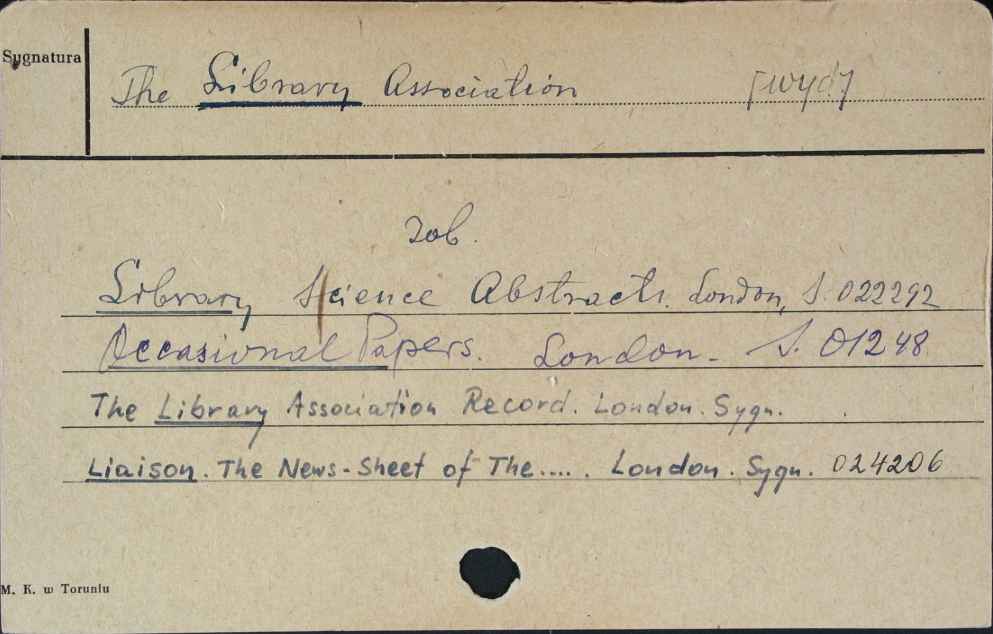 Sygnatura
The Library Association [wyd]
zob.
Library Science Abstracts. London, S. 022292
Occasional Papers. London - S. 01248
The Library Association Record. London. Sygn. .
Liaison. The News-Sheet of The..... London. Sygn. 024206
M. K. w Toruniu